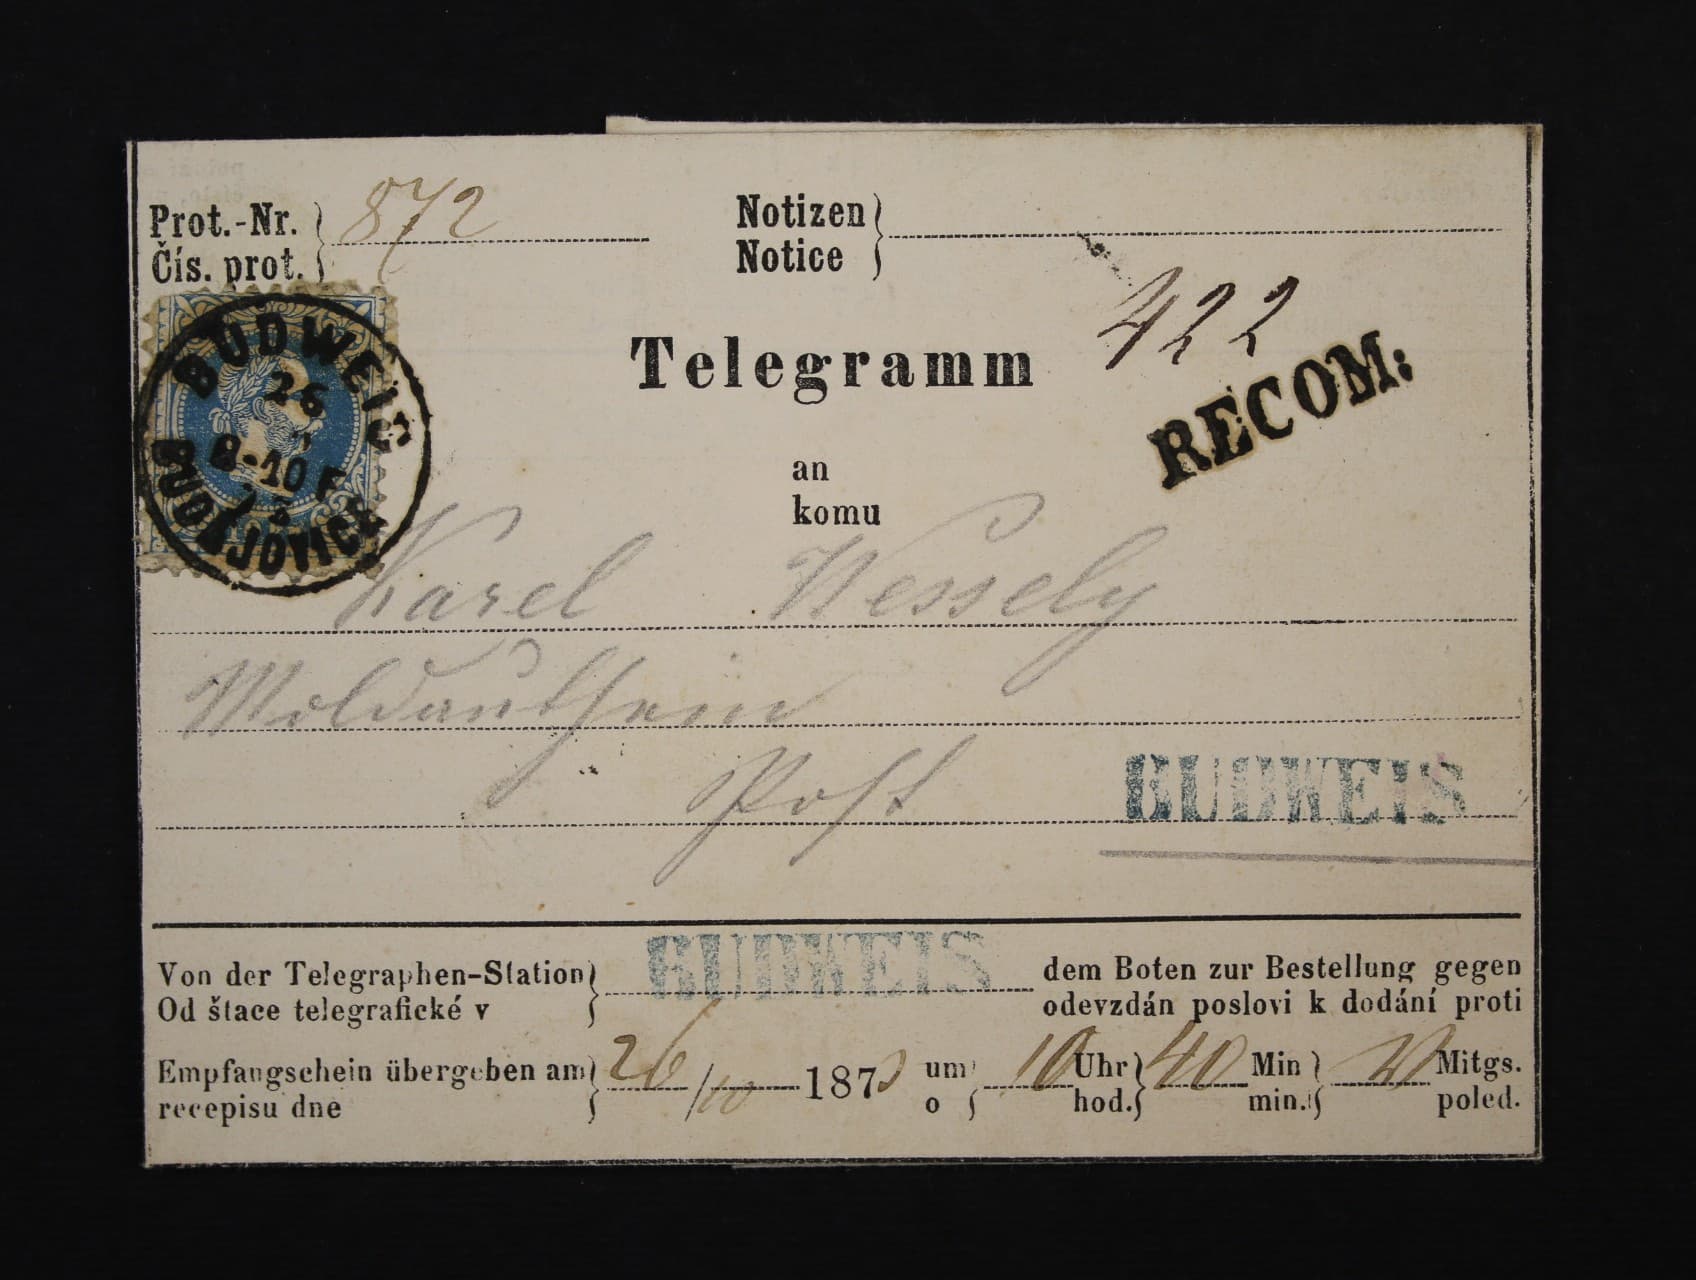 Prot.-Nr. } 872
Čís. prot. }
Notizen }
Notice }
422
Telegramm
RECOM:
BUDWEIS
26
8-10 F
BUDĚJOVICE
an
komu
Karel Wessely
Moldauthein
Post BUDWEIS
Von der Telegraphen-Station } BUDWEIS dem Boten zur Bestellung gegen
Od štace telegrafické v odevzdán poslovi k dodání proti
Empfangschein übergeben am } 26/10 187 um } 10 Uhr } 40 Min } Mitgs.
recepisu dne o hod. min. poled.